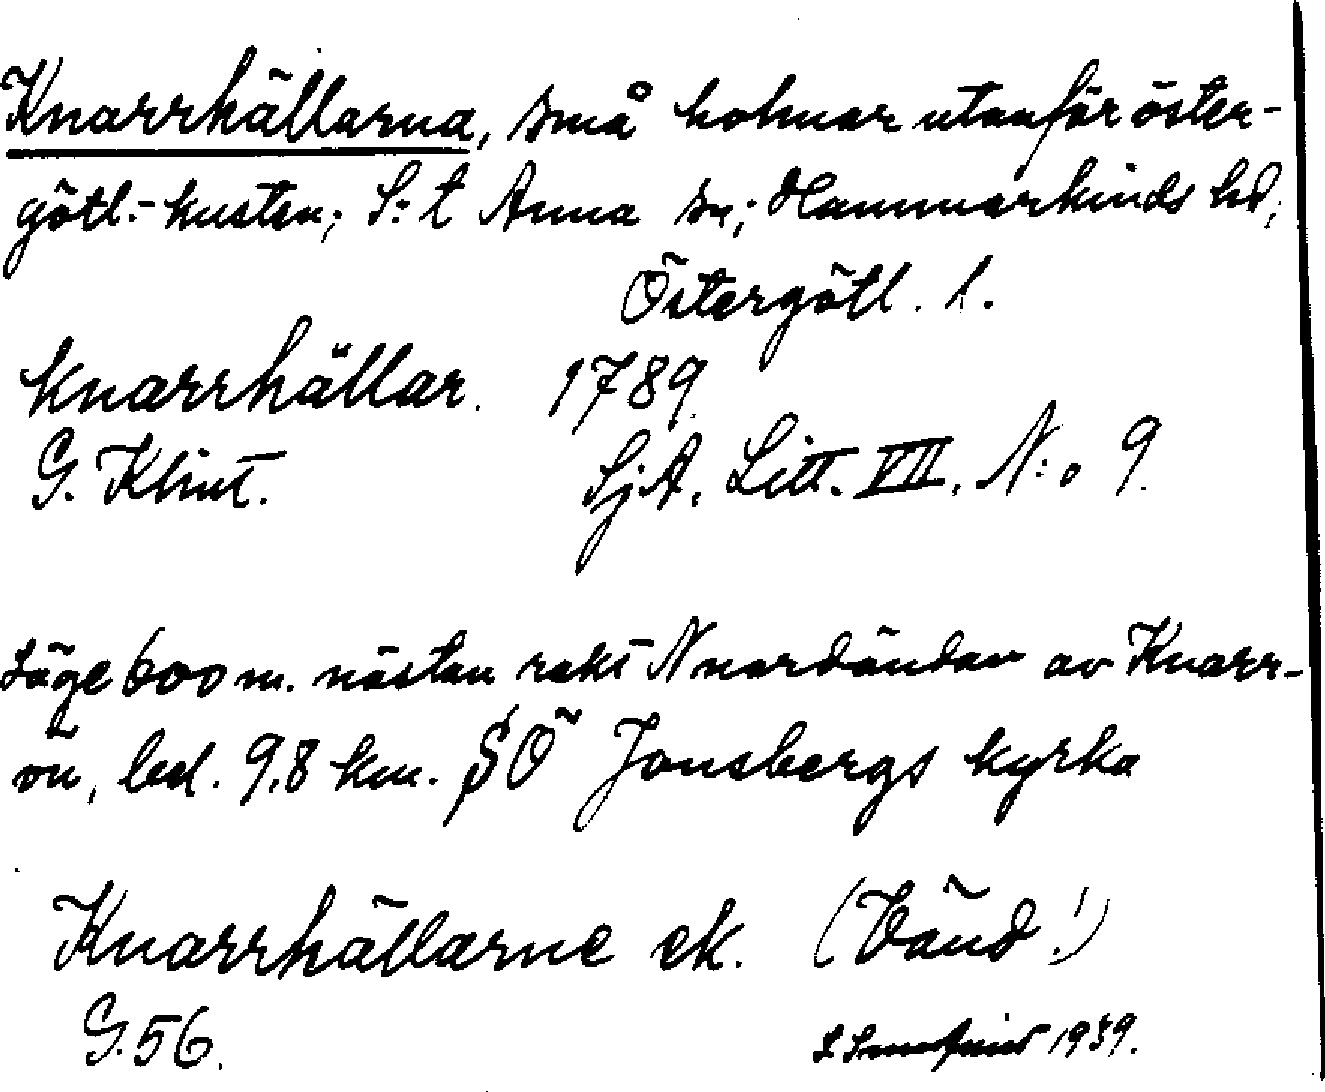 Knarrhällarna, små holmar utanför öster-
götl.-kusten; S:t Anna sn; Hammarkinds hd;
Östergötl. l.
Knarrhällar. 1789.
G. Klint. SjA. Litt. VII. N:o 9.
Läge 600 m. nästan rakt N nordändan av Knarr-
ön, bel. 9,8 km. SÖ Jonsbergs kyrka
Knarrhällarne ek. (Vänd!)
G. 56. 1939.